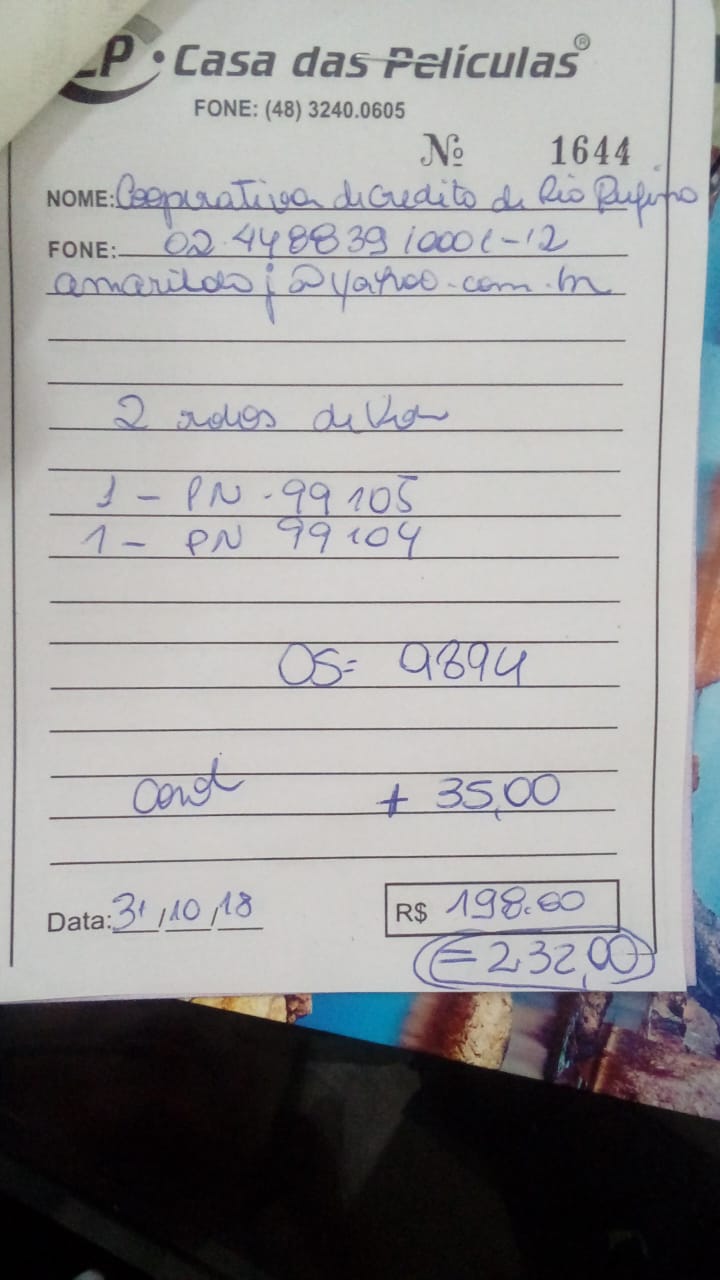 CP • Casa das Películas®
FONE: (48) 3240.0605
Nº 1644
NOME: Cooperativa de Credito de Rio Rufino
FONE: 02.448839/0001-12
amarildo j@yahoo.com.br
2 rolos de
1 - PN - 99105
1 - PN 99104
OS= 9394
+ 35,00
Data: 31/10/18 R$ 198.00
= 232,00